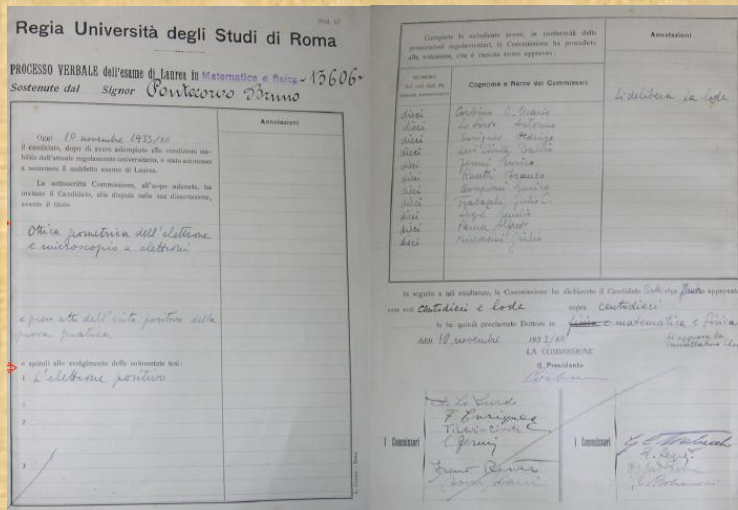 Mod. 47
Regia Università degli Studi di Roma
PROCESSO VERBALE dell'esame di Laurea in Matematica e fisica - 13606 -
Sostenuto dal Signor Pontecorvo Bruno
Annotazioni
Oggi 10 novembre 1933/XII
il candidato, dopo di avere adempiuto alle condizioni sta-
bilite dall'attuale regolamento universitario, è stato ammesso
a sostenere il suddetto esame di Laurea.
La sottoscritta Commissione, all'uopo adunata, ha
invitato il Candidato, alla disputa sulla sua dissertazione,
avente il titolo
Ottica geometrica dell'elettrone
e microscopio a elettroni
e preso atto dell'esito positivo della
prova pratica
e quindi allo svolgimento delle sottonotate tesi:
1 L'elettrone positivo
2
3
Compiute le suindicate prove, in conformità delle
prescrizioni regolamentari, la Commissione ha proceduto
alla votazione, che è riuscita come appresso:
Annotazioni
NUMERO
dei voti dati da
ciascun commissario
Cognome e Nome dei Commissari
Si delibera la lode
dieci Corbino O. Mario
dieci Lo Surdo Antonino
dieci Enriques Federigo
dieci Levi Civita Tullio
dieci Fermi Enrico
dieci Rasetti Franco
dieci Bompiani Enrico
dieci Trabacchi Giulio C.
dieci Segrè Emilio
dieci
dieci Giulio
In seguito a tali risultanze, la Commissione ha dichiarato il Candidato approvato
con voti centodieci e lode sopra centodieci
lo ha quindi proclamato Dottore in fisica e matematica e fisica
addì 10 novembre 1933/XII
Si approva la
LA COMMISSIONE
IL Presidente
Corbino
Lo Surdo
F. Enriques
T. Levi-Civita
E. Fermi
I Commissari
I Commissari
Franco Rasetti
G. C. Trabacchi
E. Segrè